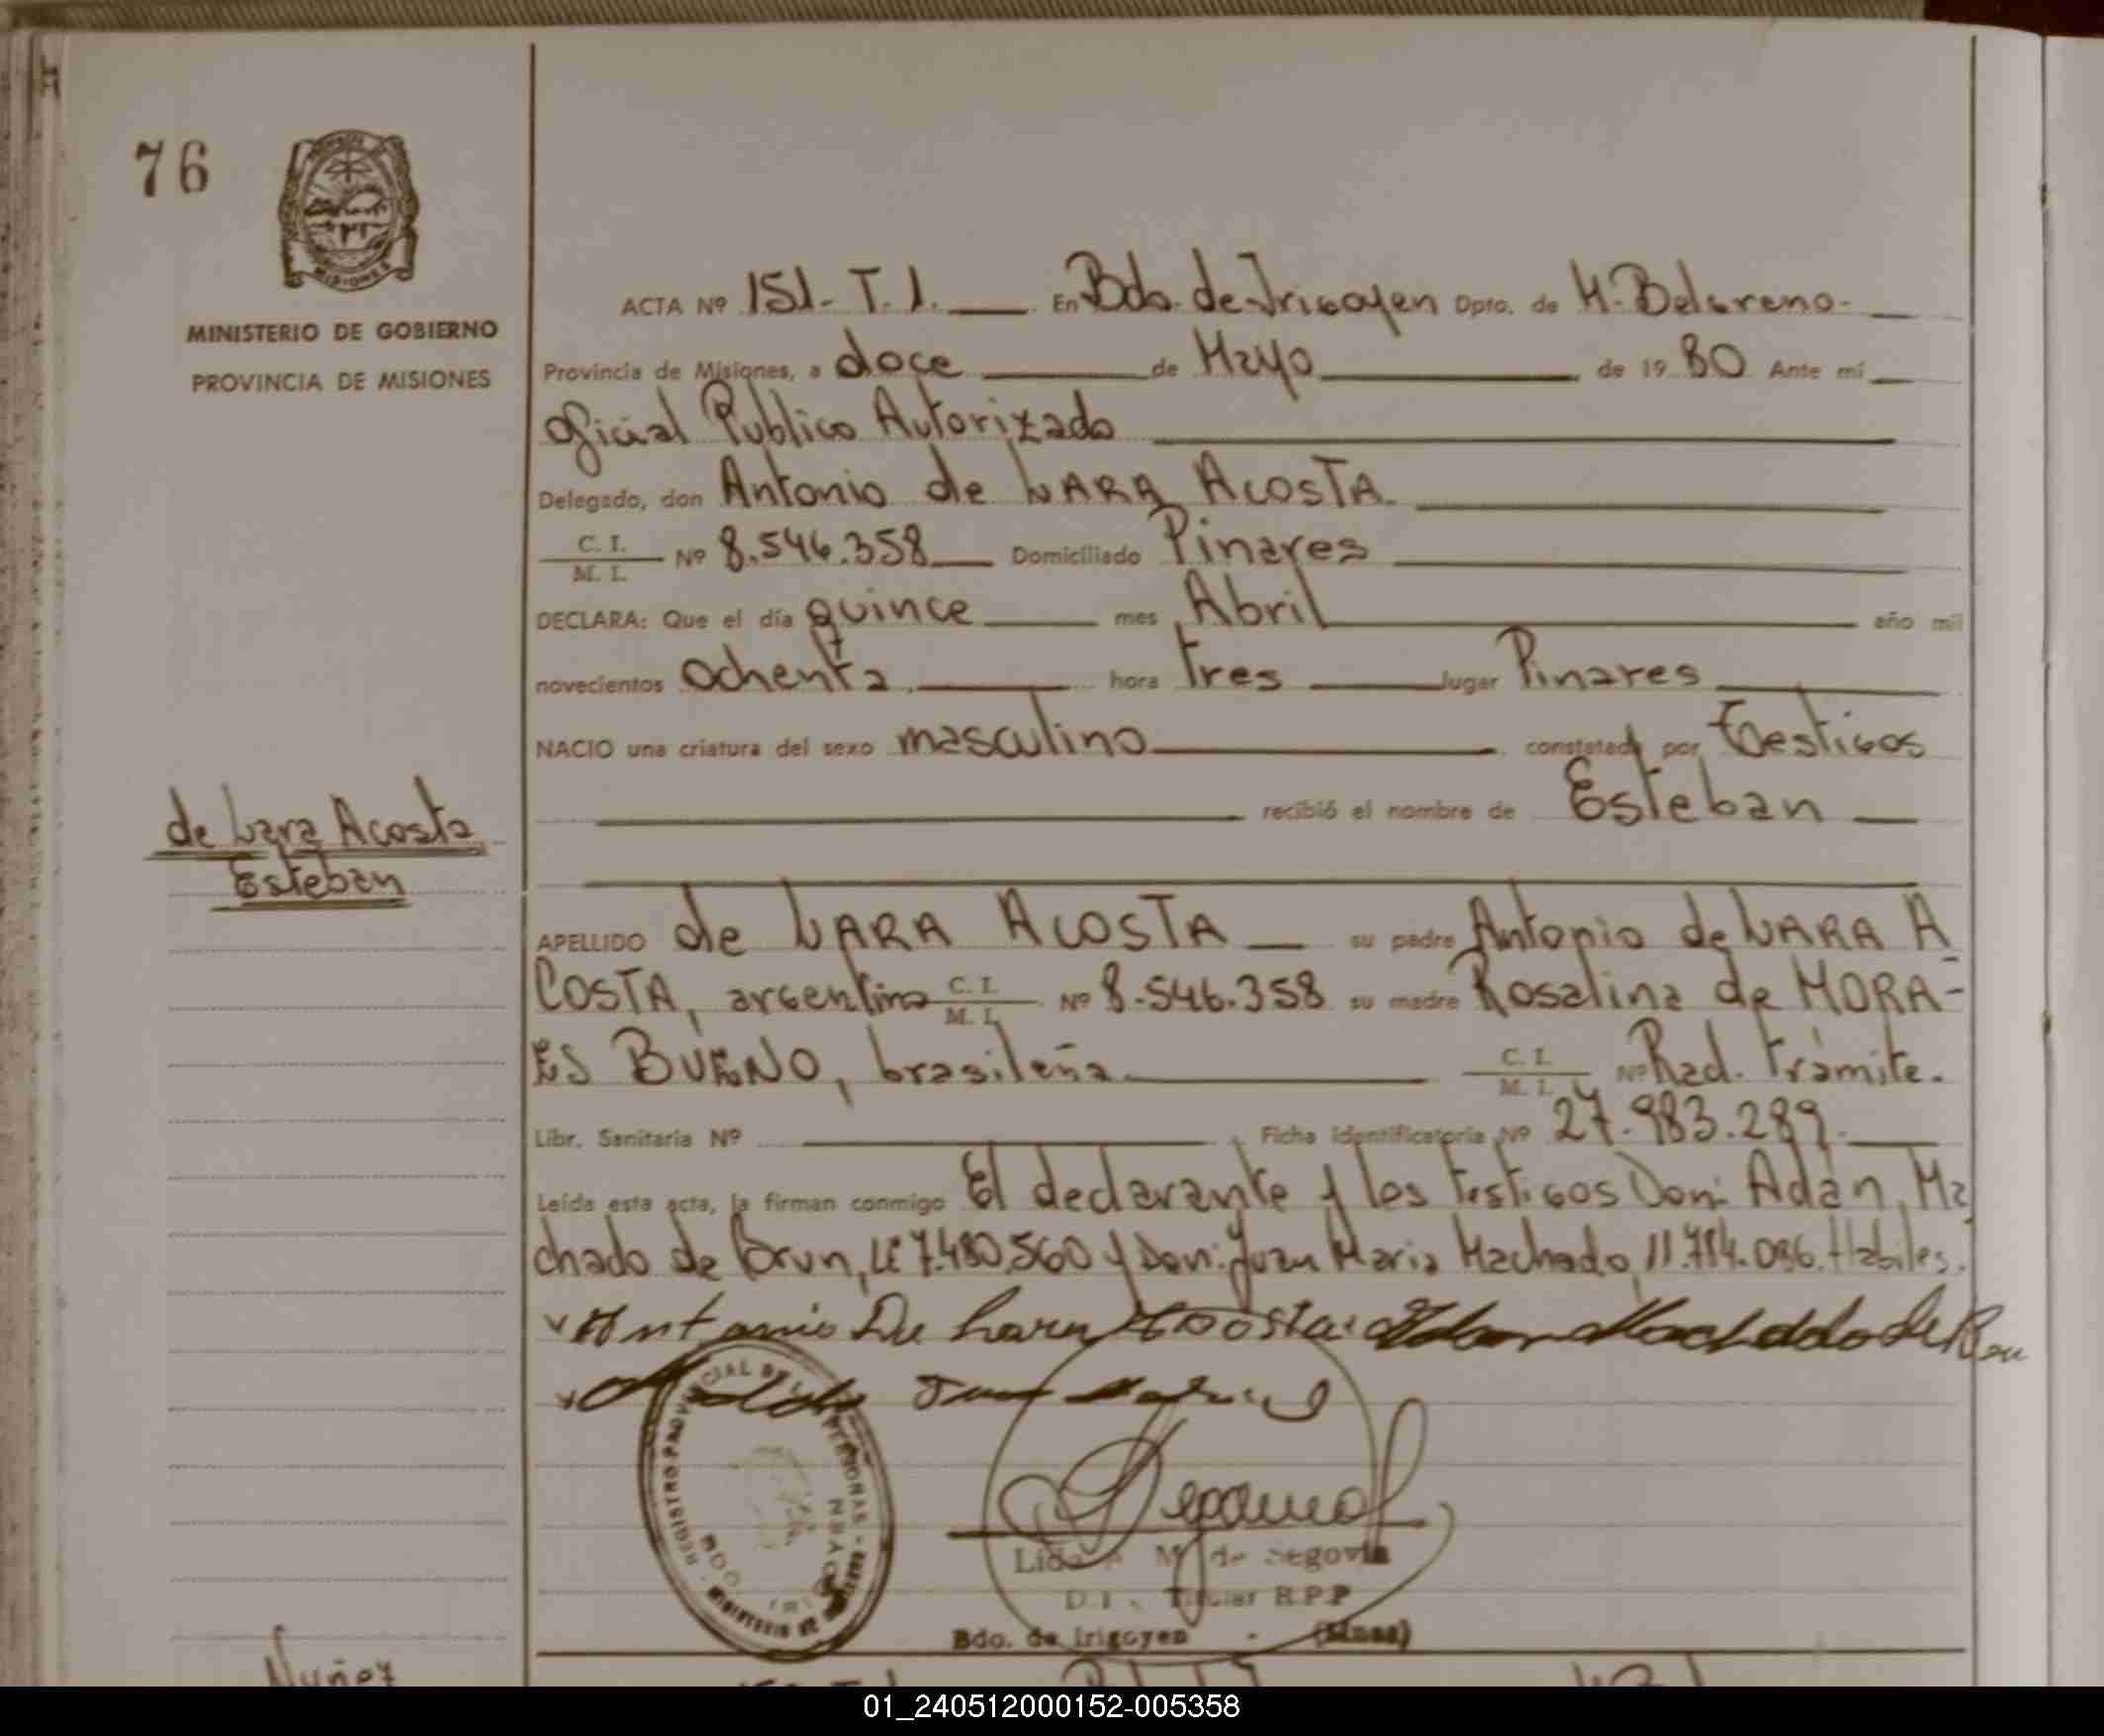 76
MISIONES
MINISTERIO DE GOBIERNO
PROVINCIA DE MISIONES
ACTA Nº 151-T.1. En Bdo. de Irigoyen Dpto. de M. Belgrano-
Provincia de Misiones, a doce de Mayo de 1980 Ante mí
Oficial Publico Autorizado
Delegado, don Antonio de LARA ACOSTA.
C. I. / M. I. Nº 8.546.358 Domiciliado Pinares
DECLARA: Que el día quince mes Abril año mil
novecientos ochenta hora tres lugar Pinares
NACIO una criatura del sexo masculino constatado por Testigos
recibió el nombre de Esteban
de Lara Acosta
Esteban
APELLIDO de LARA ACOSTA su padre Antonio de LARA A
COSTA, argentino C. I. / M. I. Nº 8.546.358 su madre Rosalina de MORA-
ES BUENO, brasileña C. I. / M. I. Nº Rad. trámite.
Libr. Sanitaria Nº Ficha identificatoria Nº 27.983.289.
Leída esta acta, la firman conmigo El declarante y los testigos Don: Adán Ma
chado de Brun, LE 7.480.560 y Don: Juan Maria Machado, Habiles.
Antonio De Lara Acosta
REGISTRO PROVINCIAL DE LAS PERSONAS
de Segovia
Titular R.P.P
Bdo. de Irigoyen - (Mnes)
Nuñez
01_240512000152-005358